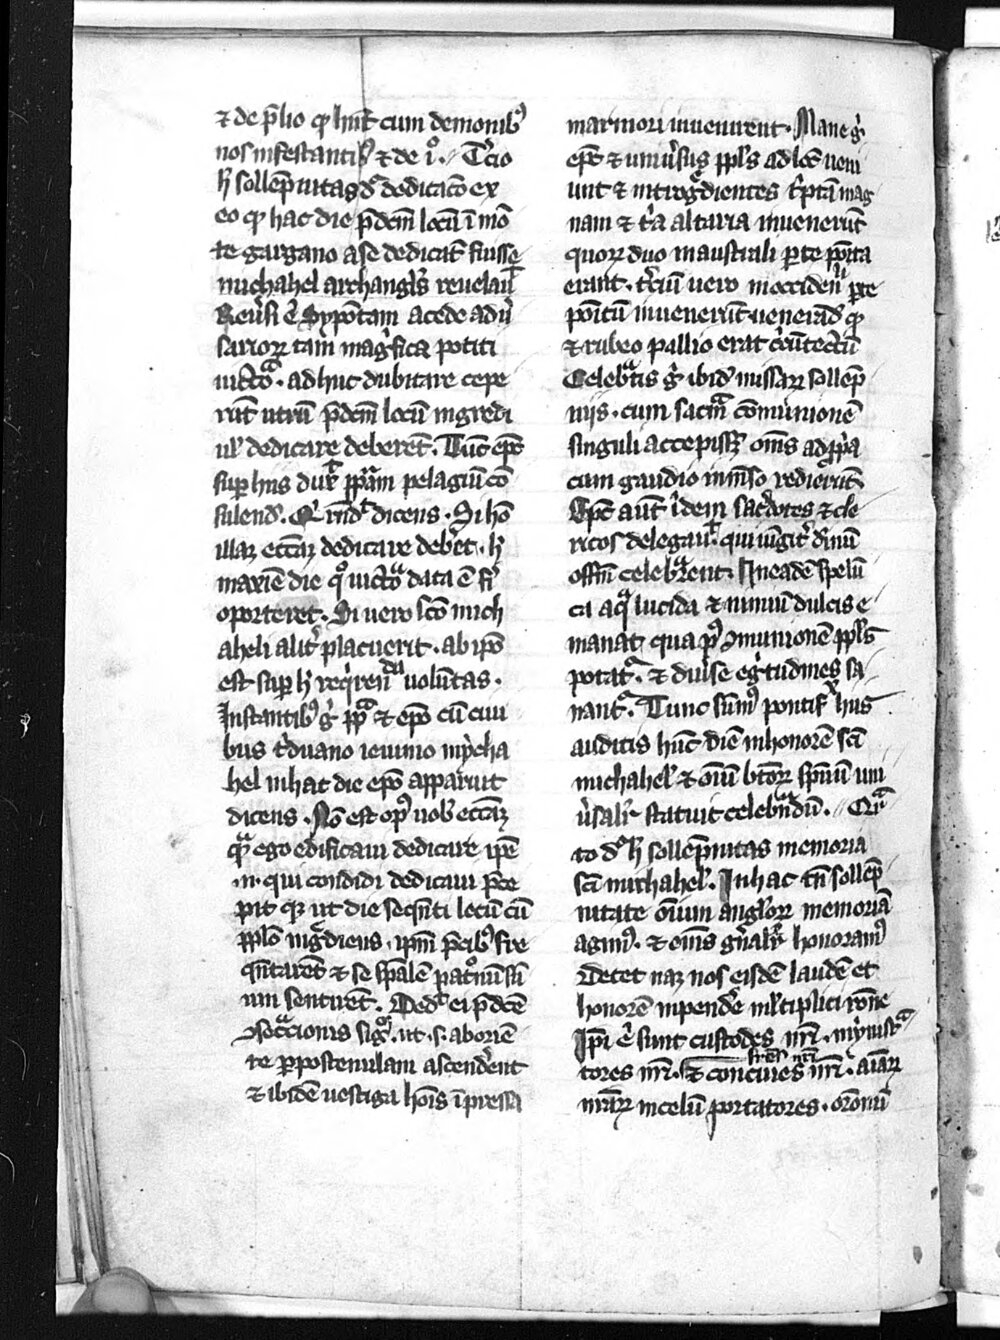 ⁊ de p̄lio qd̓ hn̄t cum demonib⁹
nos infestantib⁹ ⁊ de i°. Tercio
h̓ sollēpnitas dr̄ dedicatō ex
eo qd̓ hac die p̄dcm̄ locū ī mō
te gargano a se dedicatū fuisse
michahel archangl̓s reuelauit
Reu̓si ē Sypōtani a cede adu̓
sarioꝝ tam mag̓fica potiti
uictoͣ. adhuc dubitare cepe
rūt utrū p̄dcm̄ locū ingredi
ul̓ dedicare deberēt. Tūc ep̄c
suꝑ hiis dux̓ pp̄am pelagiū cō
sulend̓. Qͥ rn̄dit dicens. Si hō
illaꝫ ecc̄aꝫ dedicare deb̓et. h̓
maxīe die qͦ uictoͣ data ē fi̓
oporteret. Si uero sc̄o mich
aheli alit̓ placuerit. ab ip̄o
est suꝑ h̓ reqͥrenda uolūtas.
Instantib⁹ g̓ pp̄a ⁊ ep̄o cū ciui
bus t̓duano ieiunio mycha
hel in hac die ep̄o apparuit
dicens. Nō est op⁹ uob̓ ecc̄aꝫ
qͣ ego edificaui dedicare ip̄e
.n. qui condidi dedicaui p̄ce
pit qꝫ ut die seqn̄ti locū cū
pp̄lo ingͣdiens. ip̄m p̄cib⁹ fre
qn̄tarēt ⁊ se sp̄alē patͦnū
um sentirēt. Dedit ei p̄dc̄e
ɔsecͣcionis sig°. ut .s. ab oriē
te ꝑ postenulam ascend̓ent
⁊ ibidē uestigia hōis īpressa
marmori inuenirent. Mane g̓
ep̄c ⁊ uniu̓sus pp̄ls ad locū ueni
unt ⁊ introgͣdientes c̓ptā mag
nam ⁊ t̓a altaria inuenerūt
quoꝝ duo in australi ꝑte po̓ita
erant. t̓ciū uero in occidentali ꝑte
po̓itū inuenerūt uenerand̓ qd̓
⁊ rubeo pallio erat c̓cūtectū
Celebͣtis g̓ ibid̓ missaꝝ sollēp
niis. cum sacͣm cōmunionē
singuli accepissꝫ om̄s ad pp̓a
cum gaudio īmēso redierūt
Ep̄c aūt ibidem sac̓dotes ⁊ cle
ricos delegauit. qui iūgit̓ diuinū
offm̄ celebͣrent. In eadē spelū
ca aqͣ lucida ⁊ nimiū dulcis e
manat. qua p⁹ ɔmunionē pp̄ls
potatͬ. ⁊ diu̓se eg̓tudines sa
nantͬ. Tunc sūm⁹ pontifex hiis
auditis hūc diē in honorē sc̄i
michahel̓ ⁊ oīu btōꝝ sp̄uū uni
u̓salit̓ statuit celebͣndū. Quͣ
to dr̄ h̓ sollēpnitas memoria
sc̄i michahel̓. In hac tn̄ sollēp
nitate oīum angl̓oꝝ memoriā
agim⁹. ⁊ om̄s gn̄alit̓ honoram⁹
Decet naꝫ nos eisdē laudē et
honorē inpend̓e ml̓tiplici rōne
Ip̄i ē sunt custodes nr̄i. mynistͣ
tores nr̄i. fr̄es nr̄i ⁊ conciues nr̄i. aīaꝝ
nr̄aꝝ in celū portatores. orōnū